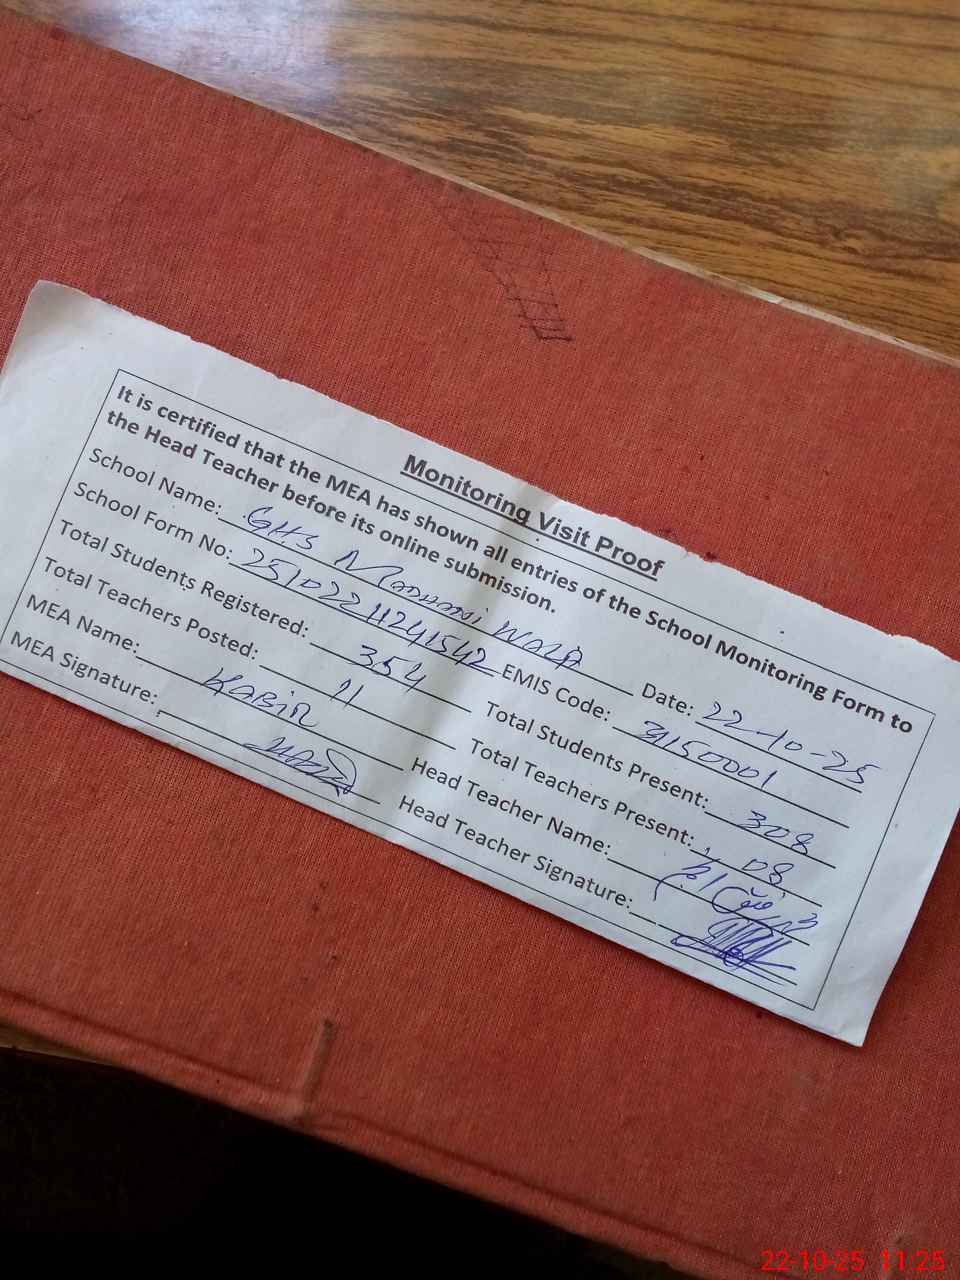 Monitoring Visit Proof
It is certified that the MEA has shown all entries of the School Monitoring Form to
the Head Teacher before its online submission.
School Name: GHS Madhani Wala Date: 22-10-25
School Form No: 251022112241542 EMIS Code: 31150001
Total Students Registered: 354 Total Students Present: 308
Total Teachers Posted: 11 Total Teachers Present: 08
MEA Name: KABIR Head Teacher Name:
MEA Signature: Head Teacher Signature:
22-10-25 11:25